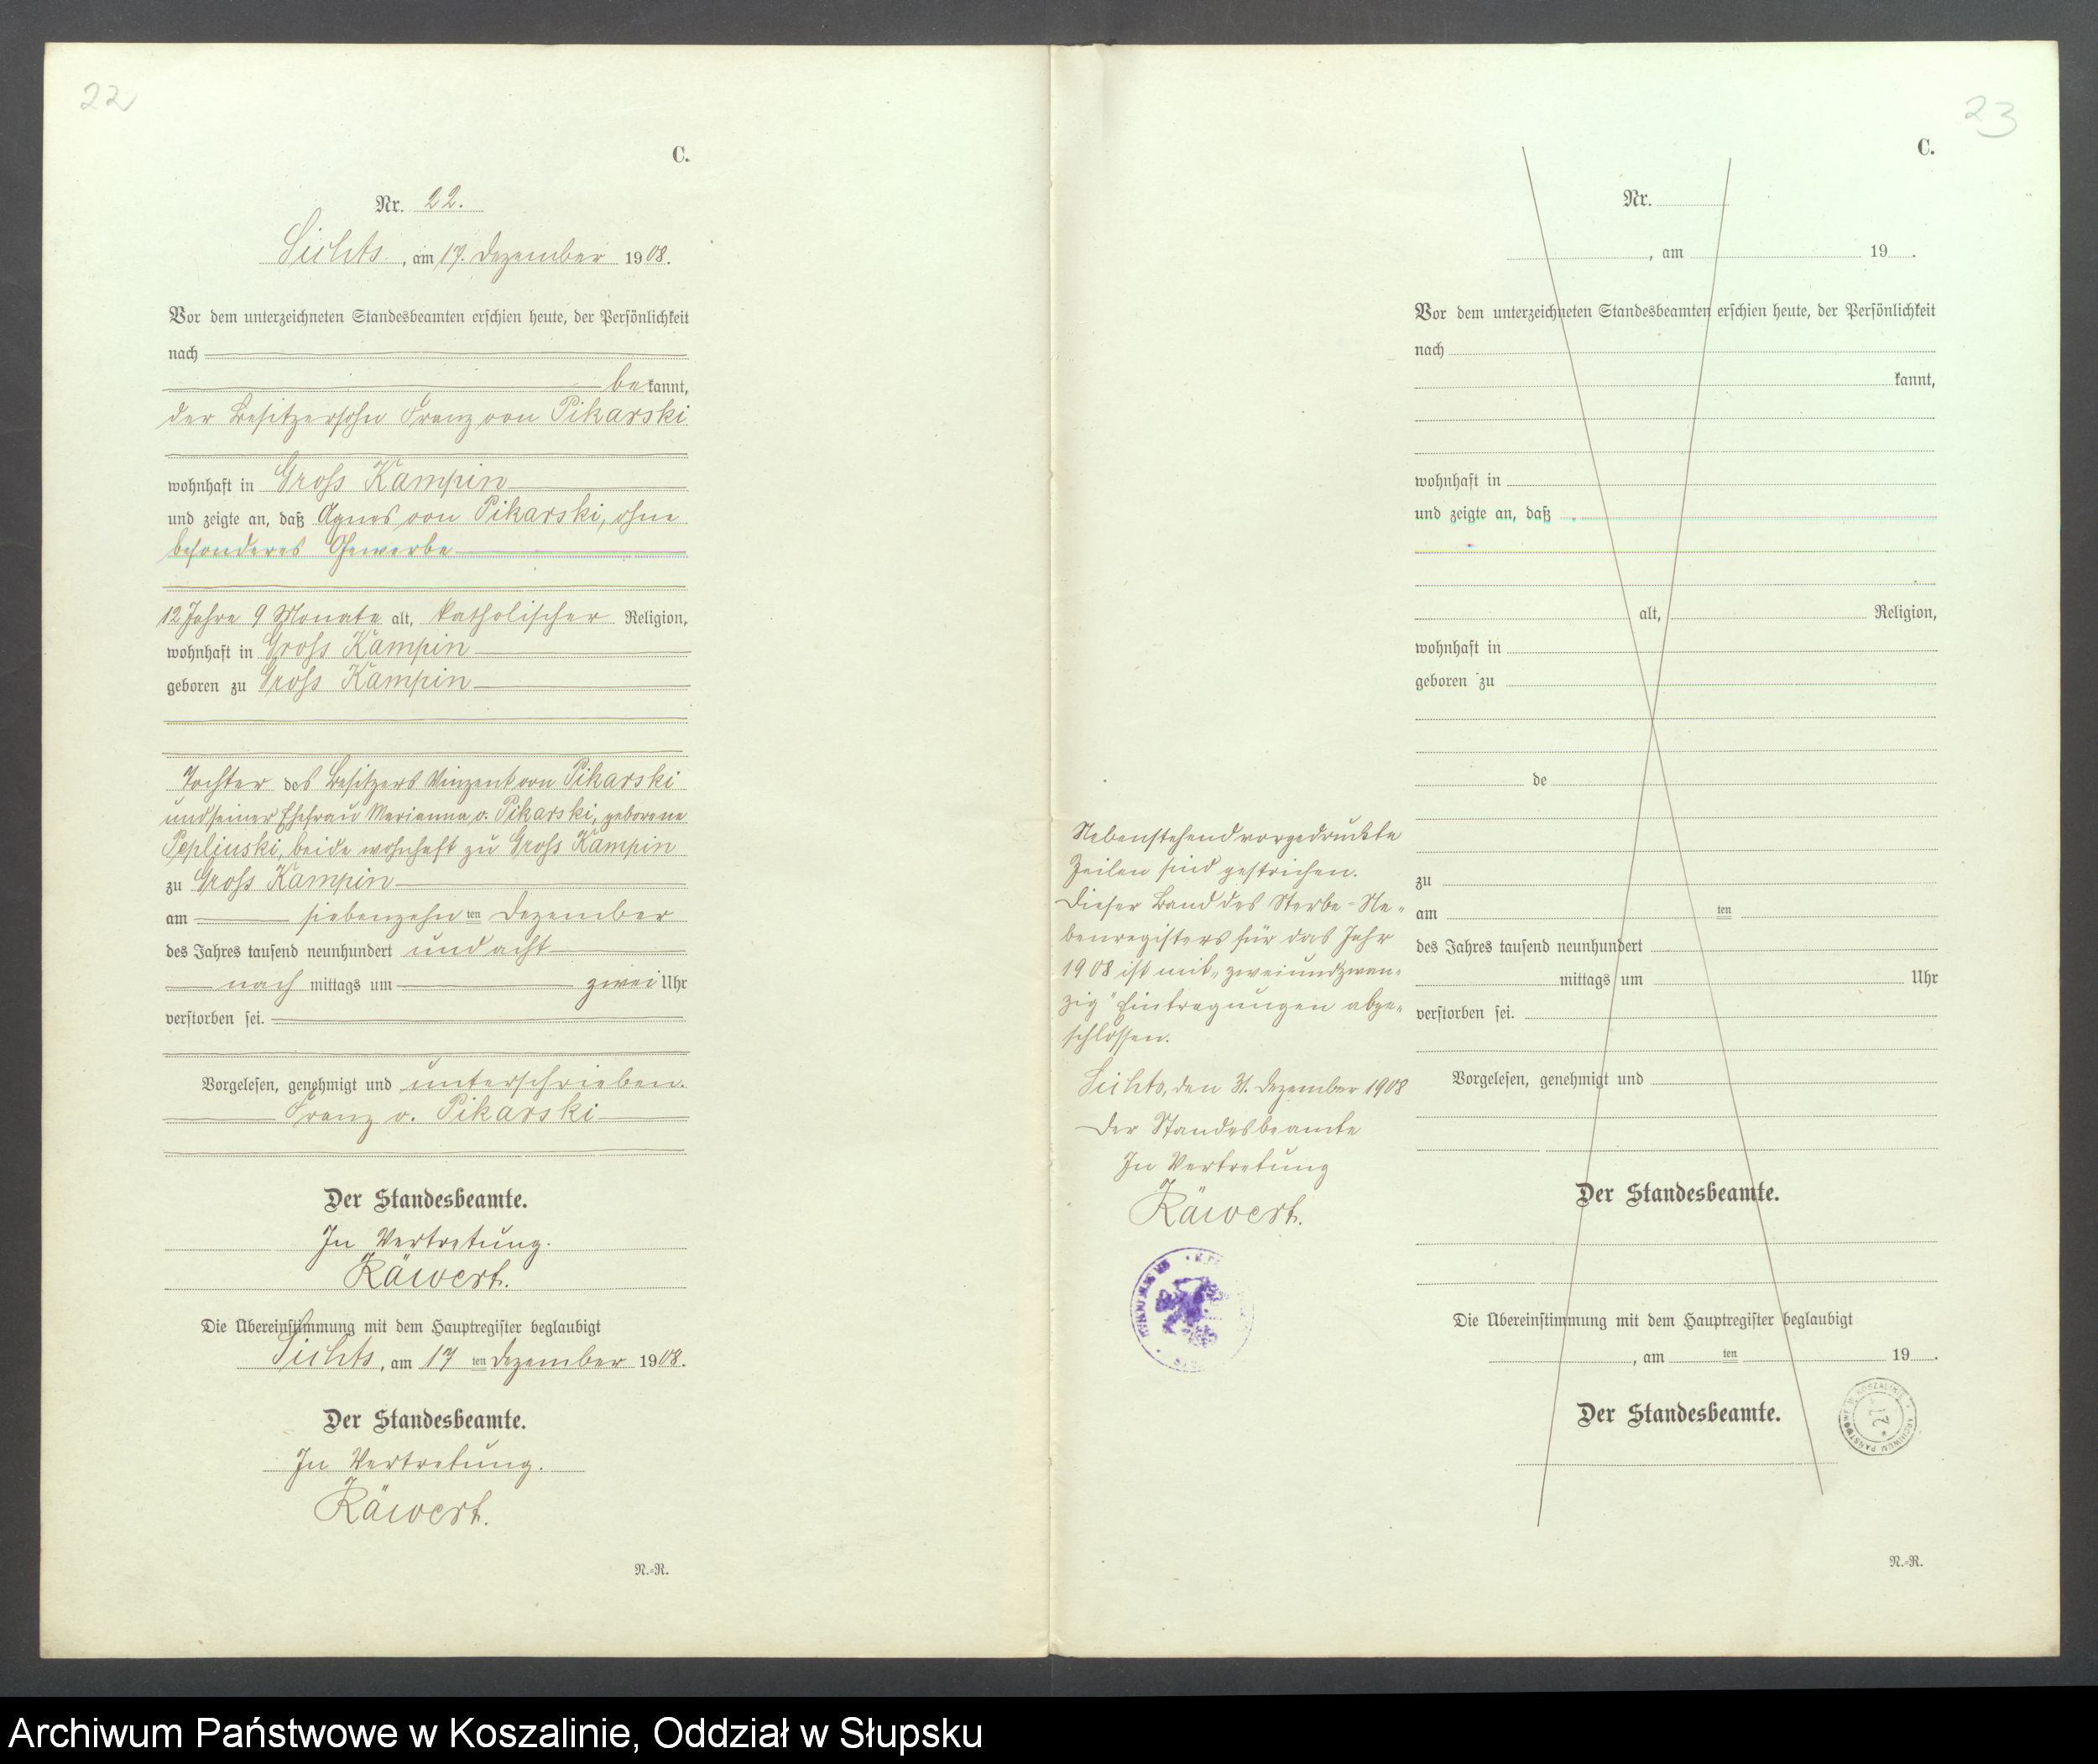 22
C.
Nr. 22.
Lichts, am 17. Dezember 1908.
Vor dem unterzeichneten Standesbeamten erschien heute, der Persönlichkeit
nach
bekannt,
der Besitzersohn Franz von Pikarski
wohnhaft in Gross Kampin
und zeigte an, daß Agnes von Pikarski, ohne
besonderes Gewerbe
12 Jahre 9 Monate alt, katholischer Religion,
wohnhaft in Gross Kampin
geboren zu Gross Kampin
Tochter des Besitzers Vinzent von Pikarski
und seiner Ehefrau Marianna v. Pikarski, geborene
Peplinski, beide wohnhaft zu Gross Kampin
zu Gross Kampin
am siebenzehnten Dezember
des Jahres tausend neunhundert und acht
nachmittags um zwei Uhr
verstorben sei.
Vorgelesen, genehmigt und unterschrieben.
Franz v. Pikarski
Der Standesbeamte.
In Vertretung.
Räwert.
Die Übereinstimmung mit dem Hauptregister beglaubigt
Lichts, am 17 ten Dezember 1908.
Der Standesbeamte.
In Vertretung.
Räwert.
N.-R.
23
C.
Nr.
, am 19 .
Vor dem unterzeichneten Standesbeamten erschien heute, der Persönlichkeit
nach
kannt,
wohnhaft in
und zeigte an, daß
alt, Religion,
wohnhaft in
geboren zu
de
zu
am ten
des Jahres tausend neunhundert
mittags um Uhr
verstorben sei.
Vorgelesen, genehmigt und
Der Standesbeamte.
Die Übereinstimmung mit dem Hauptregister beglaubigt
, am ten 19 .
Der Standesbeamte.
N.-R.
Nebenstehend vorgedruckte
Zeilen sind gestrichen.
Dieser Band des Sterbe-Ne-
benregisters für das Jahr
1908 ist mit „zweiundzwan-
zig" Eintragungen abge-
schlossen.
Lichts, den 31. Dezember 1908
Der Standesbeamte
In Vertretung
Räwert.
ARCHIWUM PAŃSTWOWE W KOSZALINIE
Archiwum Państwowe w Koszalinie, Oddział w Słupsku